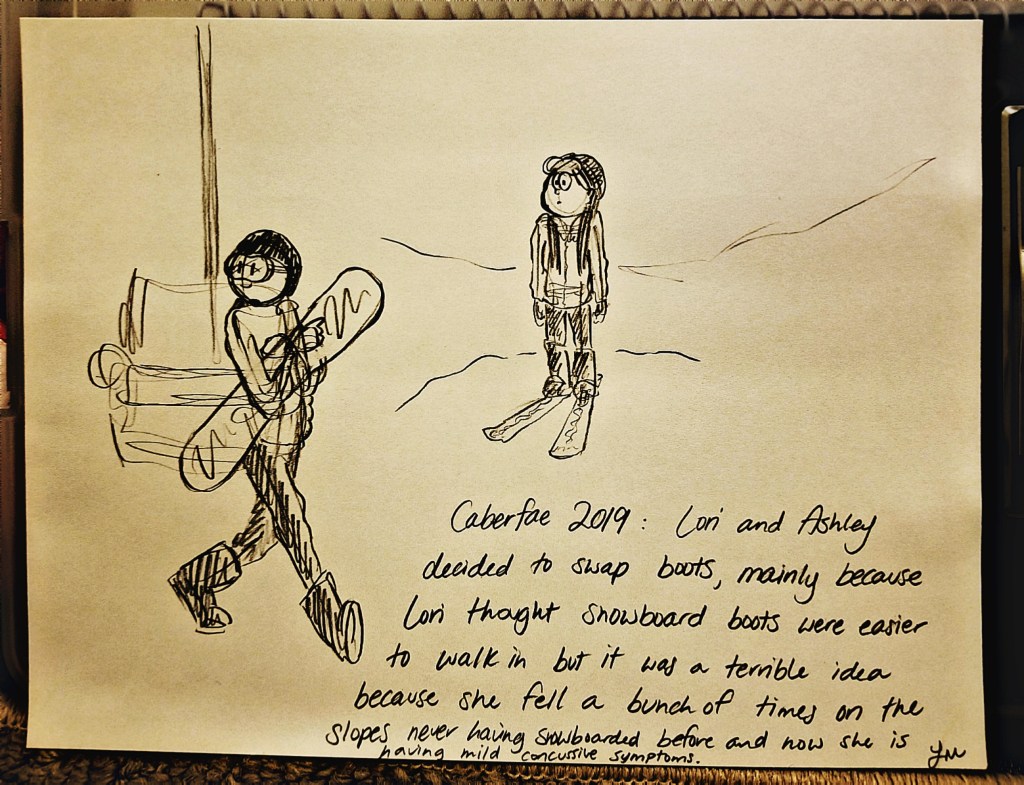 Caberfae 2019: Lori and Ashley
decided to swap boots, mainly because
Lori thought snowboard boots were easier
to walk in but it was a terrible idea
because she fell a bunch of times on the
slopes never having snowboarded before and now she is
having mild concussive symptoms.